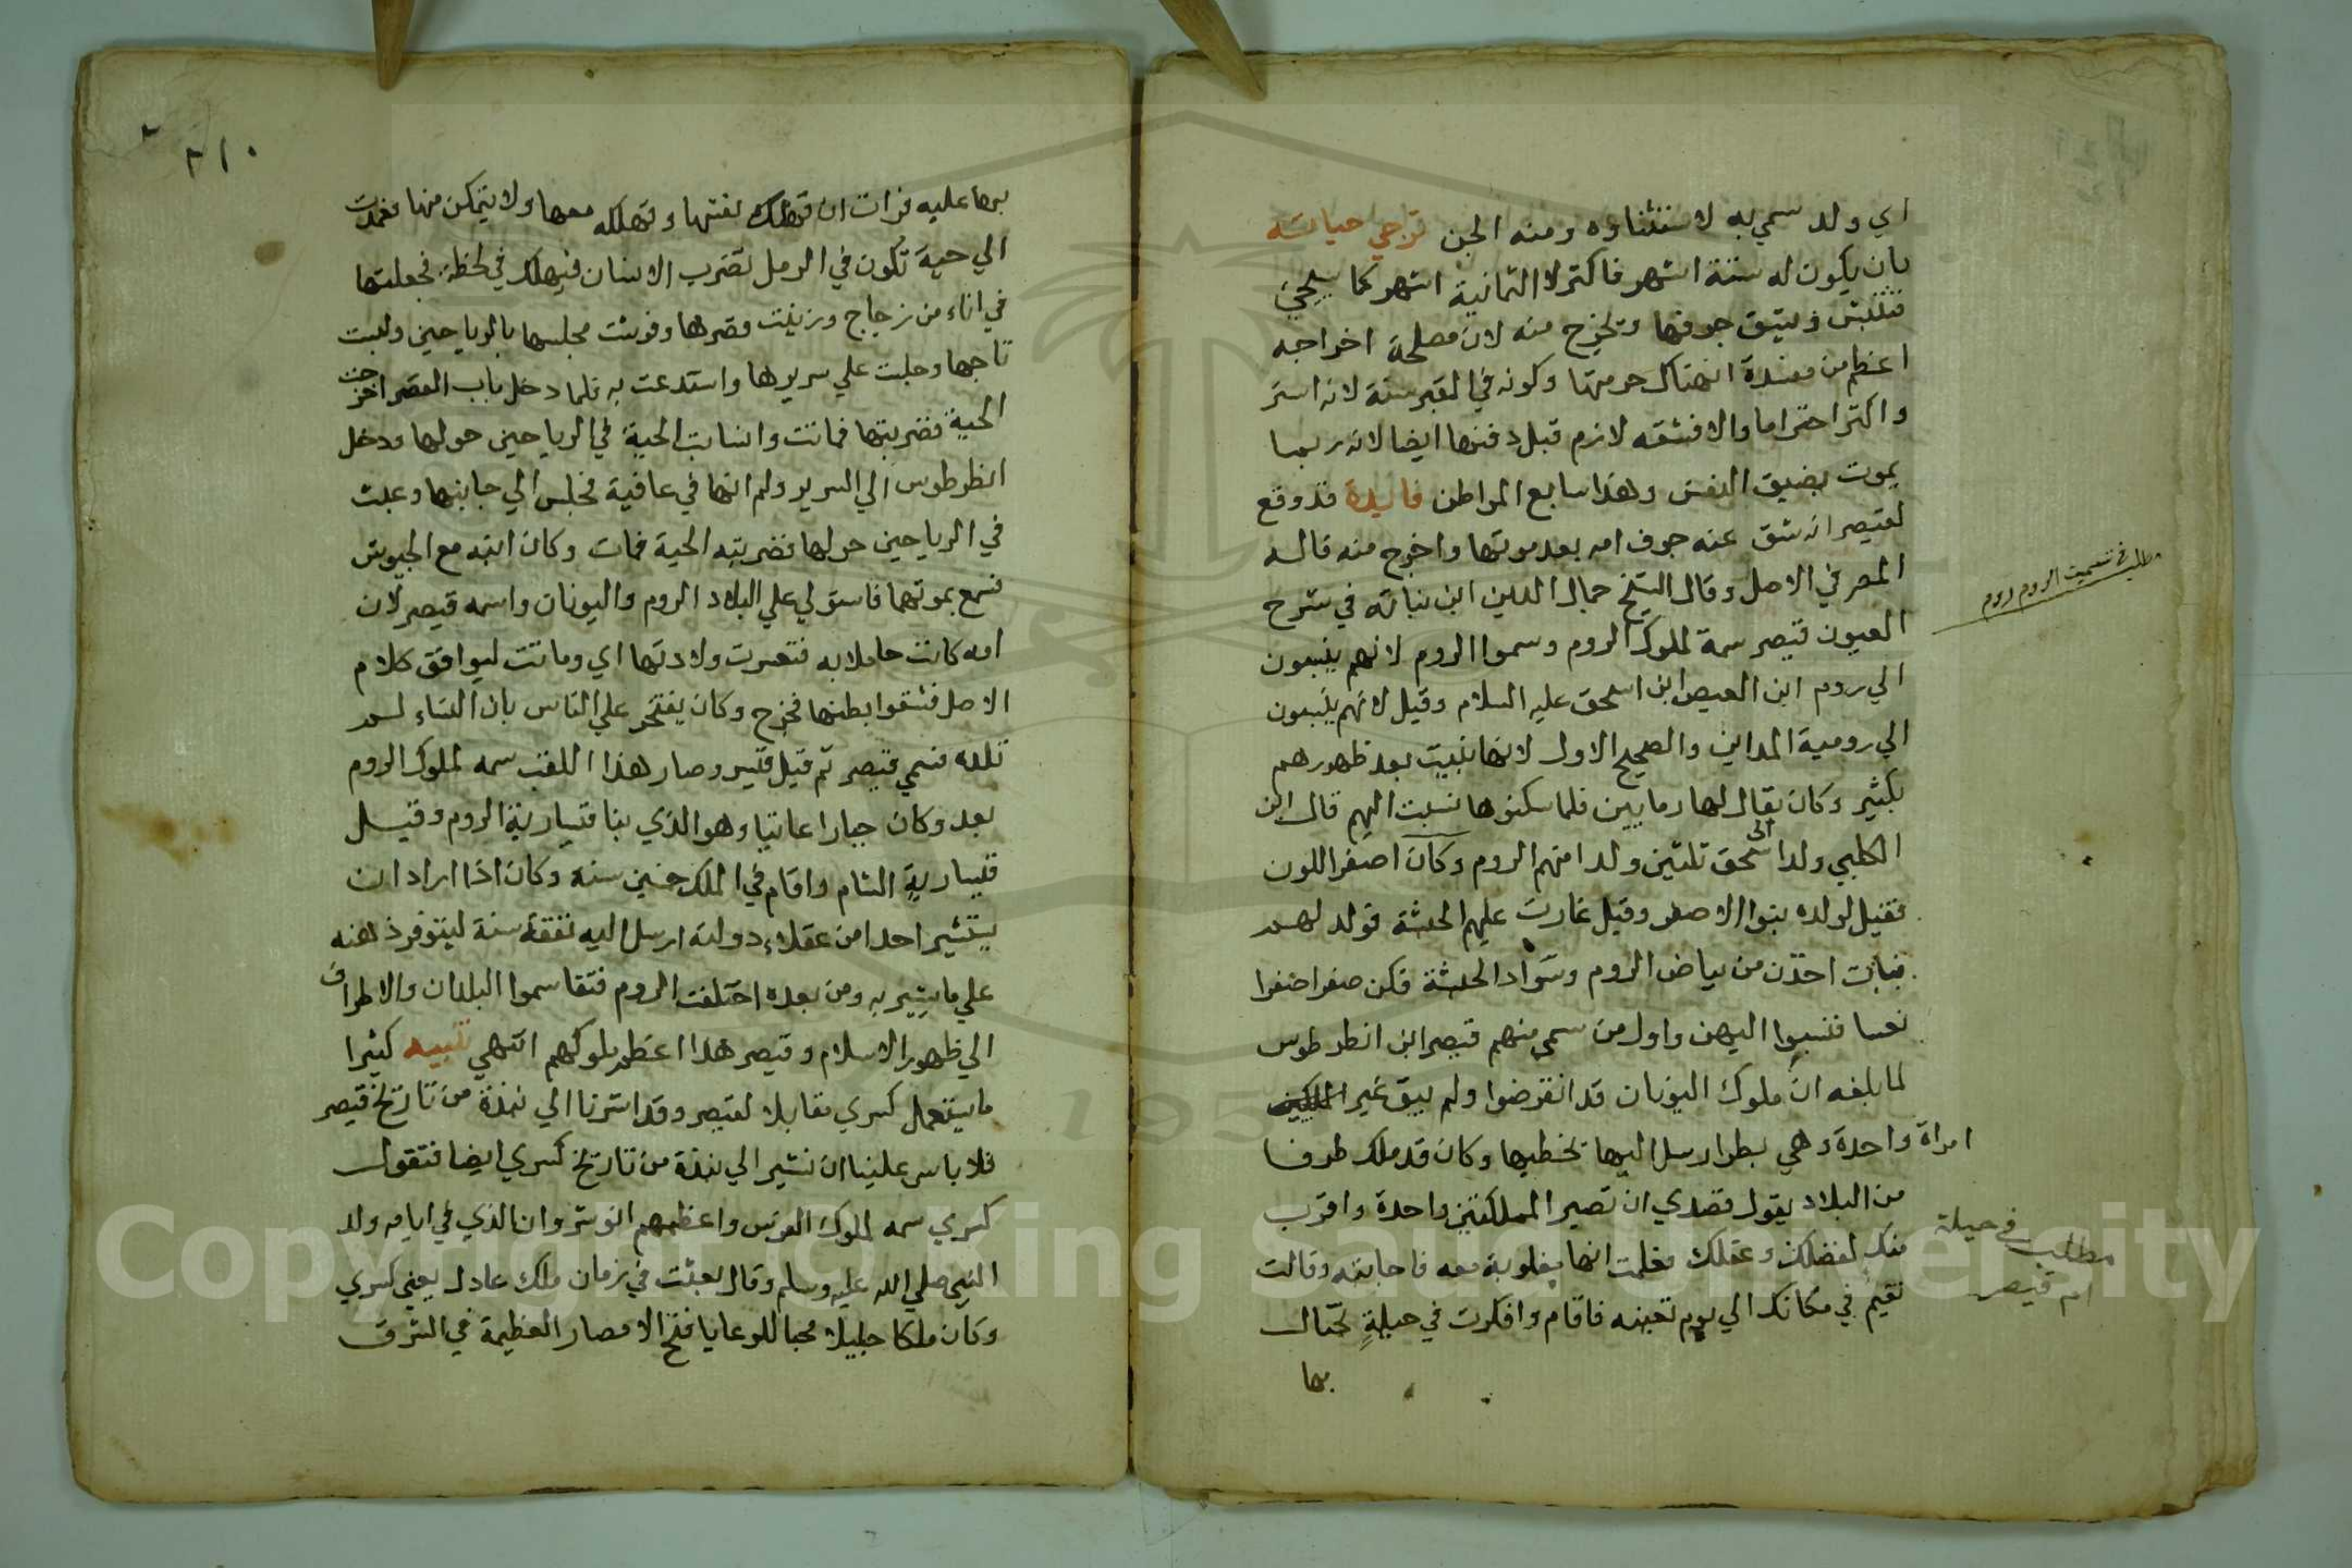 اي ولد سمي به لاستثناوه ومنه الجن ترجي حياته
بان يكون له ستة اشهر فاكثر لا الثمانية اشهر كما سيجئ
فتنبش ويشق جوفها ويخرج منه لان مصلحة اخراجه
اعظم من مفسدة انهتاك حرمتها وكونه في القبر سنة لانه استر
واكثر احتراما والا فشقه لازم قبل دفنها ايضا لانه ربما
يموت بضيق النفس وهذا سابع المواطن فايدة قد وقع
لقيصر انه شق عنه جوف امه بعد موتها واخرج منه قاله
المصر في الاصل وقال الشيخ جمال الدين ابن نباته في شرح
مطلب في تسميت الروم روم
العيون قيصر سمة لملوك الروم وسموا الروم لانهم ينسبون
الي روم ابن العيص ابن اسحق عليه السلام وقيل لانهم ينسبون
الي رومية المداين والصحيح الاول لانها بنيت بعد ظهورهم
بكثير وكان يقال لها رمايين فلما سكنوها نسبت اليهم قال ابن
الكلبي ولد اسحق ثلثين ولدا منهم الروم وكان اصفر اللون
فقيل لولده بنوا الاصفر وقيل غارت عليهم الحبشة فولد لهم
بنات اخذن من بياض الروم وسواد الحبشة فكن صفرا
نعسا فنسبوا اليهن واول من سمي منهم قيصر ابن انطرطوس
لما بلغه ان ملوك اليونان قد انقرضوا ولم يبق غير
امراة واحدة وهي بطرا ارسل اليها يخطبها وكان قد ملك طرفا
من البلاد يقول قصدي ان تصير المملكتين واحدة واقرب
منك لفضلك وعقلك فعلمت انها مغلوبة معه فاجابته وقالت
مطلب في حيلة
ام قيصر
تقيم في مكانك الي يوم تعينه فاقام وافكرت في حيلة تحتال
بها
٢١٠
بها عليه فرات ان تهلك نفسها وتهلكه معها ولا يتمكن منها فعمدت
الي حية تكون في الرمل تضرب الانسان فيهلك في لحظة فجعلتها
في اناء من زجاج وزينت قصرها وفرشت مجلسها بالرياحين ولبست
تاجها وجلست علي سريرها واستدعت به فلما دخل باب القصر اخرجت
الحية فضربتها فماتت وانسابت الحية في الرياحين حولها ودخل
انطرطوس الي السرير ولم انها في عافية فجلس الي جانبها وعبث
في الرياحين حولها فضربته الحية فمات وكان ابنه مع الجيوش
فسمع بموتهما فاستولي علي البلاد الروم واليونان واسمه قيصر لان
امه كانت حاملا به فتعسرت ولادتها اي وماتت ليوافق كلام
الاصل فشقوا بطنها فخرج وكان يفتخر علي الناس بان النساء لم
تلده فسمي قيصر ثم قيل قيسر وصار هذا اللقب سمه لملوك الروم
بعد وكان جبارا عاتيا وهو الذي بنا قيسارية الروم وقيل
قيسارية الشام واقام في الملك خمسين سنة وكان اذا اراد ان
يستشير احدا من عقلاء دولته ارسل اليه نفقة سنة ليتوفر ذهنه
علي ما يشير به ومن بعده اختلفت الروم فتقاسموا البلدان والاطراف
الي ظهور الاسلام وقيصر هذا اعظم ملوكهم انتهي تنبيه كثيرا
ما يستعمل كسري مقابلا لقيصر وقد اشرنا الي نبذة من تاريخ قيصر
فلا باس علينا ان نشير الي نبذة من تاريخ كسري ايضا فنقول
كسري سمه لملوك الفرس واعظمهم انوشروان الذي في ايامه ولد
النبي صلي الله عليه وسلم وقال بعثت في زمان ملك عادل يعني كسري
وكان ملكا جليلا محبا للرعايا فتح الامصار العظيمة في الشرق
Copyright © King Saud University
1957